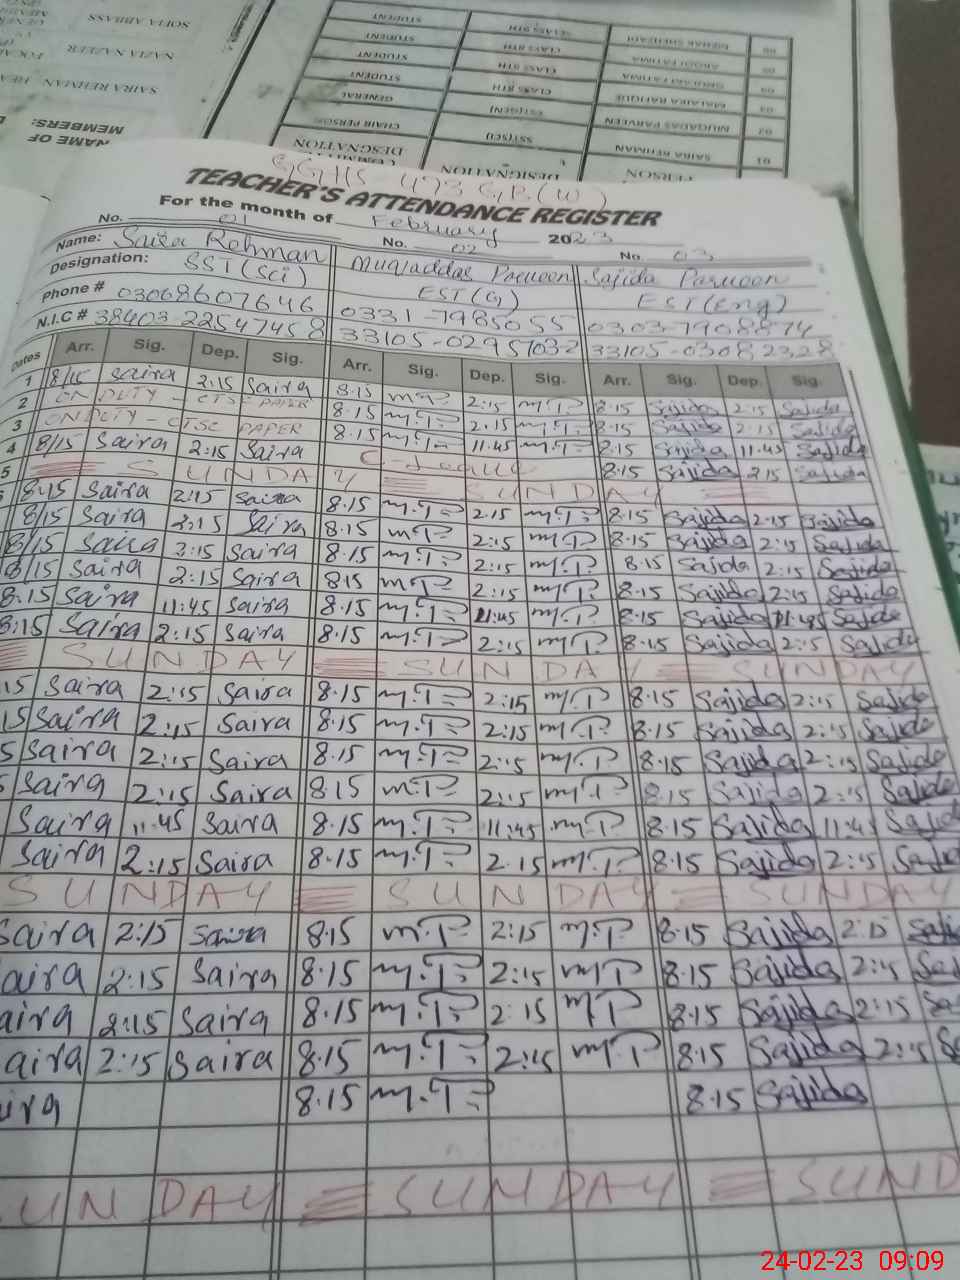 SOFIA ABBASS
NAZIA NAZEER
SAIRA REHMAN
MEMBERS:
NAME OF
STUDENT
STUDENT CLASS 8TH
STUDENT CLASS 8TH 05
STUDENT CLASS 8TH 04
GENERAL SST(GEN) MALAIKA RAFIQUE 03
CHAIR PERSON SST(SCI) MUQADAS PARVEEN 02
SAIRA REHMAN 01
DESGNATION DESIGNATION PERSON
GGHS 473 G.B(W)
TEACHER'S ATTENDANCE REGISTER
For the month of February 2023
No. 01 No. 02 No. 03
Name: Saira Rehman Muqaddas Parveen Sajida Parveen
Designation: SST(Sci) EST(G) EST(Eng)
Phone # 03068607646 0331-7985055 0303-7908874
N.I.C # 38403-22547458 33105-0295703-2 33105-03082328
Dates Arr. Sig. Dep. Sig. Arr. Sig. Dep. Sig. Arr. Sig. Dep. Sig.
1 8/15 Saira 2:15 Saira 8.15 m.P 2:15 m.P 8.15 Sajida 2:15 Sajida
2 ON DUTY - CTSC PAPER 8.15 m.P 2.15 m.P 8.15 Sajida 2:15 Sajida
3 ON DUTY - CTSC PAPER 8.15 m.P 11.45 m.P 8.15 Sajida 11.45 Sajida
4 8/15 Saira 2:15 Saira C-Leave 8.15 Sajida 2:15 Sajida
5 SUNDAY SUNDAY
8.15 Saira 2:15 Saira 8.15 m.P 2.15 m.P 8.15 Sajida 2:15 Sajida
8/15 Saira 2:15 Saira 8.15 m.P 2:15 m.P 8.15 Sajida 2:15 Sajida
8/15 Saira 2:15 Saira 8.15 m.P 2:15 m.P 8.15 Sajida 2:15 Sajida
8/15 Saira 2:15 Saira 8.15 m.P 2:15 m.P 8.15 Sajida 2:15 Sajida
8.15 Saira 11:45 Saira 8.15 m.P 11:45 m.P 8.15 Sajida 11:45 Sajida
8:15 Saira 2:15 Saira 8.15 m.P 2:15 m.P 8.15 Sajida 2:15 Sajida
SUNDAY SUNDAY SUNDAY
15 Saira 2:15 Saira 8.15 m.P 2:15 m.P 8.15 Sajida 2:15 Sajida
15 Saira 2:15 Saira 8.15 m.P 2:15 m.P 8.15 Sajida 2:15 Sajida
5 Saira 2:15 Saira 8.15 m.P 2:15 m.P 8.15 Sajida 2:15 Sajida
5 Saira 2:15 Saira 8.15 m.P 2:15 m.P 8.15 Sajida 2:15 Sajida
Saira 11:45 Saira 8.15 m.P 11:45 m.P 8.15 Sajida 11:45 Sajida
Saira 2:15 Saira 8.15 m.P 2.15 m.P 8.15 Sajida 2:15 Sajida
SUNDAY SUNDAY SUNDAY
Saira 2:15 Saira 8.15 m.P 2:15 m.P 8.15 Sajida 2:15 Saji
aira 2:15 Saira 8.15 m.P 2:15 m.P 8.15 Sajida 2:15 Saj
aira 2:15 Saira 8.15 m.P 2:15 m.P 8.15 Sajida 2:15 Sa
aira 2:15 Saira 8.15 m.P 2:15 m.P 8.15 Sajida 2:15 Sa
ira 8.15 m.P 8.15 Sajida
UNDAY SUNDAY SUND
24-02-23 09:09